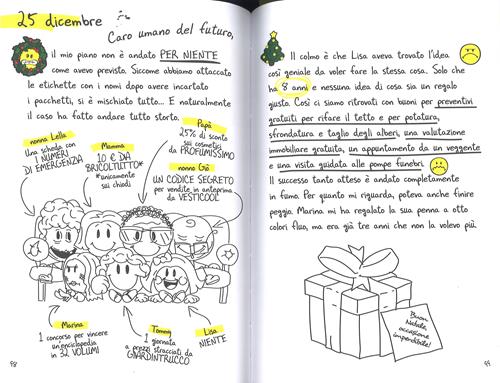 25 dicembre
Caro umano del futuro,
il mio piano non è andato PER NIENTE
come avevo previsto. Siccome abbiamo attaccato
le etichette con i nomi dopo avere incartato
i pacchetti, si è mischiato tutto... E naturalmente
il caso ha fatto andare tutto storto.
nonna Lella
Una scheda con
I NUMERI
DI EMERGENZA
Mamma
10 € DA
BRICOLTUTTO*
*unicamente
sui chiodi
Papà
25% di sconto
sui cosmetici
da PROFUMISSIMO
nonno Giò
UN CODICE SEGRETO
per vendite in anteprima
da VESTICOOL
Marina
1 concorso per vincere
un'enciclopedia
in 32 VOLUMI
Tommy
1 giornata
a prezzi stracciati da
GIARDINTRUCCO
Lisa
NIENTE
98
Il colmo è che Lisa aveva trovato l'idea
così geniale da voler fare la stessa cosa. Solo che
ha 8 anni e nessuna idea di cosa sia un regalo
giusto. Così ci siamo ritrovati con buoni per preventivi
gratuiti per rifare il tetto e per potatura,
sfrondatura e taglio degli alberi, una valutazione
immobiliare gratuita, un appuntamento da un veggente
e una visita guidata alle pompe funebri.
Il successo tanto atteso è andato completamente
in fumo. Per quanto mi riguarda, poteva anche finire
peggio. Marina mi ha regalato la sua penna a otto
colori fluo, ma era già tre anni che non la volevo più.
Buon
Natale,
occasione
imperdibile!
99